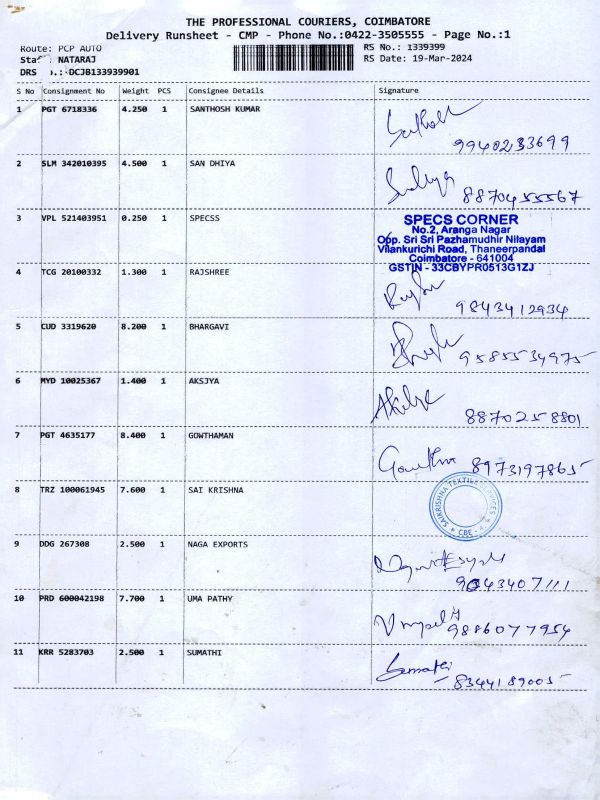 THE PROFESSIONAL COURIERS, COIMBATORE
Delivery Runsheet - CMP - Phone No.:0422-3505555 - Page No.:1
Route: PCP AUTO RS No.: 1339399
NATARAJ RS Date: 19-Mar-2024
DRS .:-DCJB133939901
S No Consignment No Weight PCS Consignee Details Signature
1 PGT 6718336 4.250 1 SANTHOSH KUMAR
9940233699
2 SLM 342010395 4.500 1 SAN DHIYA
8870455567
3 VPL 521403951 0.250 1 SPECSS SPECS CORNER
No.2, Aranga Nagar
Opp. Sri Sri Pazhamudhir Nilayam
Vilankurichi Road, Thaneerpandal
Coimbatore - 641004
GSTIN - 33CBYPR0513G1ZJ
4 TCG 20100332 1.300 1 RAJSHREE
9843412934
5 CUD 3319620 8.200 1 BHARGAVI
9585534975
6 MYD 10025367 1.400 1 AKSJYA
8870258801
7 PGT 4635177 8.400 1 GOWTHAMAN
8973197865
8 TRZ 100061945 7.600 1 SAI KRISHNA
9 DDG 267308 2.500 1 NAGA EXPORTS
9043407111
10 PRD 600042198 7.700 1 UMA PATHY
9886077954
11 KRR 5283703 2.500 1 SUMATHI Sumathi
8344189005